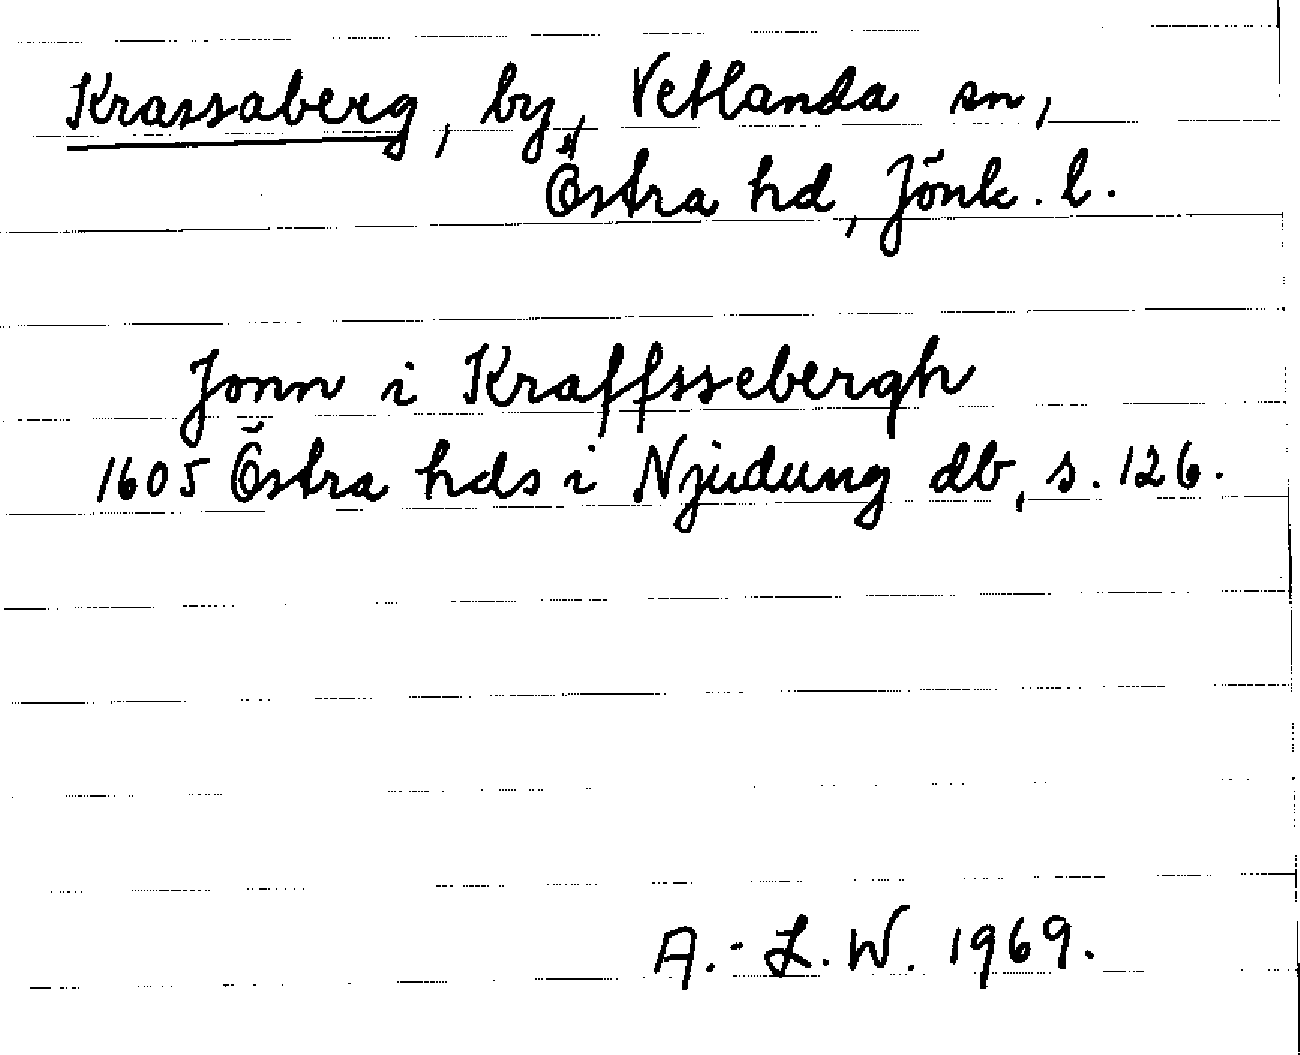 Krassaberg, by, Vetlanda sn,
Östra hd, Jönk. l.
Jonn i Kraffssebergh
1605 Östra hds i Njudung db, s. 126.
A.-L.W. 1969.